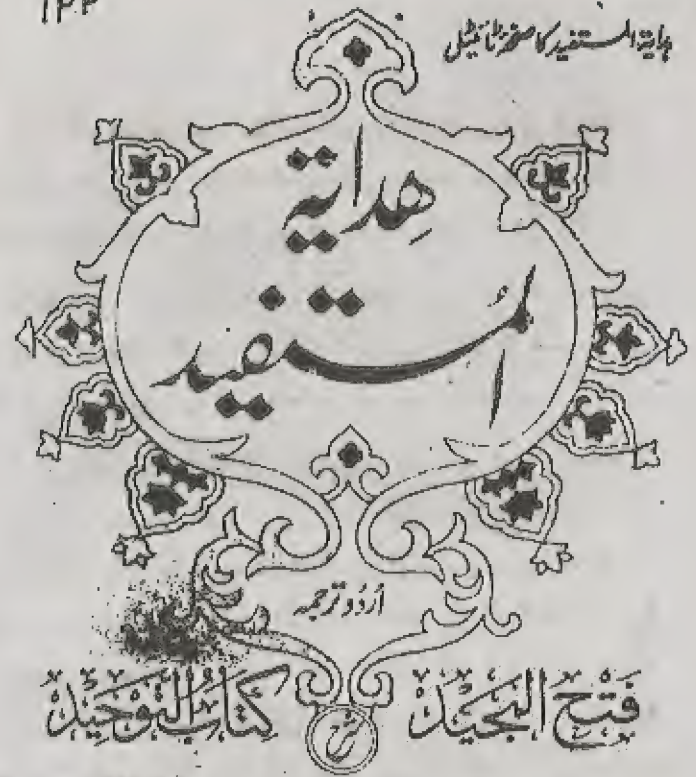 ۱۴۴
ہدایۃ المستفید کا صفحہ ٹائیٹل
هدایة
المستفید
اُردو ترجمہ
فَتحُ المَجِیْد شرح کِتَابُ التَّوحِیْد